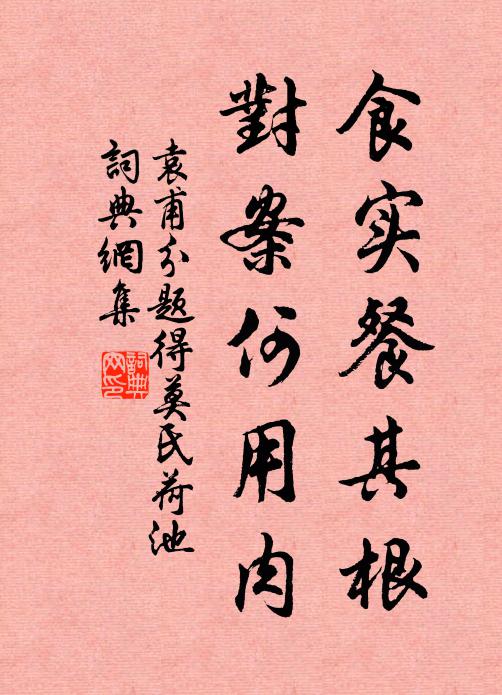 食实餐其根
對案何用肉
袁甫分題得莫氏荷池
詞典網集
詞典
网印